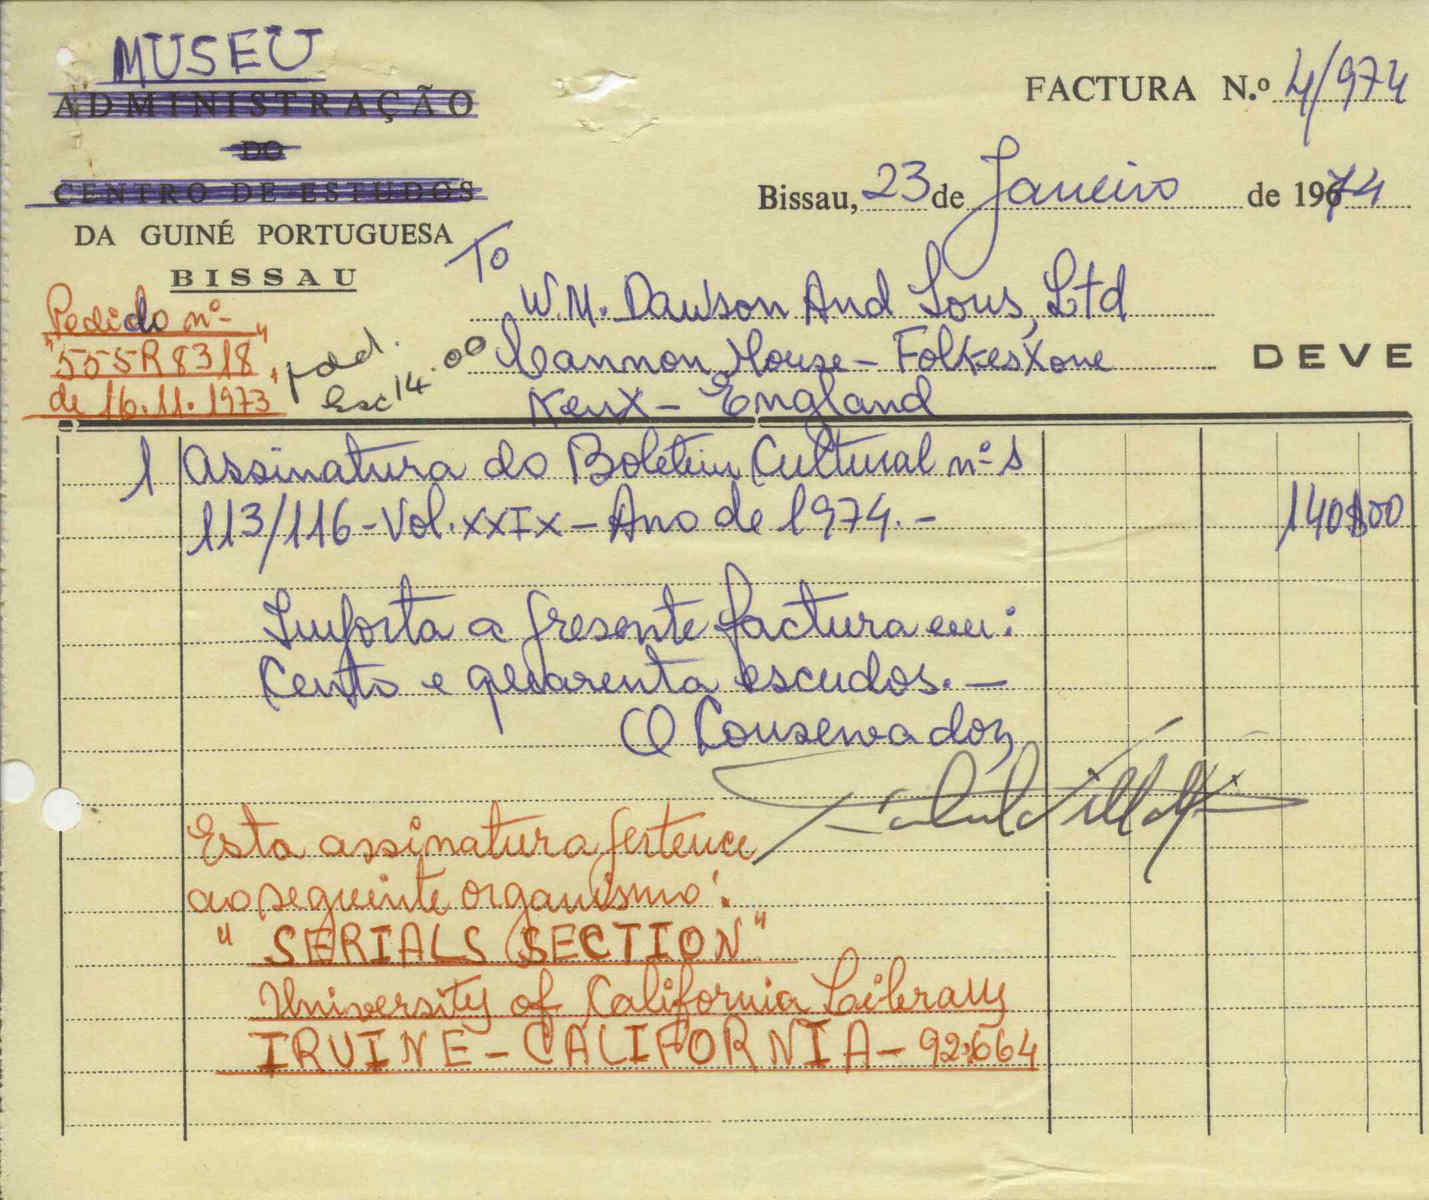 MUSEU
ADMINISTRAÇÃO
DO
CENTRO DE ESTUDOS
DA GUINÉ PORTUGUESA
BISSAU
FACTURA N.º 4/974
Bissau, 23 de Janeiro de 1974
To
W.M. Dawson And Sons, Ltd
Cannon House - Folkestone
Kent - England
DEVE
Pedido nº
"555R8318"
de 16.11.1973
Esc 14.00
1 Assinatura do Boletim Cultural nºs
113/116 - Vol. XXIX - Ano de 1974. - 140$00
Importa a presente factura em:
Cento e quarenta escudos. -
O Conservador,
Esta assinatura pertence
ao seguinte organismo:
"SERIALS SECTION"
University of California Library
IRVINE - CALIFORNIA - 92.664